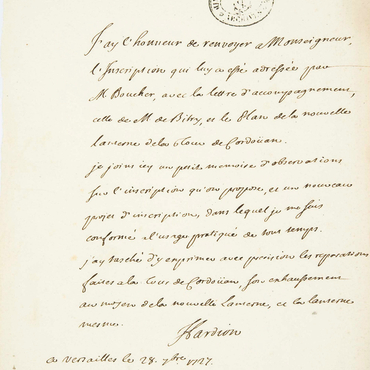 J'ay l'honneur de renvoyer a Monseigneur,
l'Inscription qui luy a esté adressée par
M. Boucher, avec la lettre d'accompagnement,
celle de M. de Bitry, et le Plan de la nouvelle
lanterne de la Tour de Cordoüan.
je joins icy un petit memoire d'observations
sur l'inscription qu'on propose, et un nouveau
projet d'inscription, dans lequel je me suis
conformé a l'usage pratiqué de tout temps.
j'ay tasché d'y exprimer avec precision les reparations
faites a la Tour de Cordoüan, son exhaussement
au moyen de la nouvelle lanterne, et la lanterne
mesme.
Hardion
a versailles le 28. 7bre 1727.